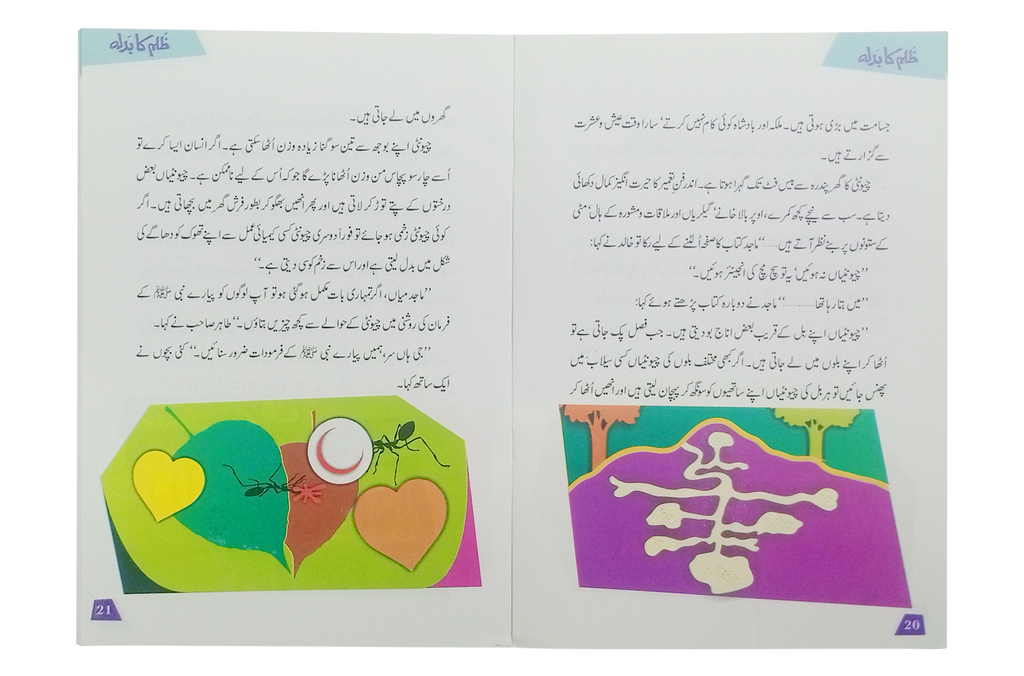 ظلم کا بدلہ
جسامت میں بڑی ہوتی ہیں۔ ملکہ اور بادشاہ کوئی کام نہیں کرتے‘ سارا وقت عیش و عشرت
سے گزارتے ہیں۔
چیونٹی کا گھر پندرہ سے بیس فٹ تک گہرا ہوتا ہے۔ اندر فنِ تعمیر کا حیرت انگیز کمال دکھائی
دیتا ہے۔ سب سے نیچے کچھ کمرے، اوپر بالا خانے‘ گیلریاں اور ملاقات و مشورہ کے ہال‘ مٹی
کے ستونوں پر بنے نظر آتے ہیں.....“ ماجد کتاب کا صفحہ اُلٹنے کے لیے رکا تو خالد نے کہا:
”چیونٹیاں نہ ہوئیں‘ یہ تو سچ مچ کی انجینئر ہوئیں۔“
”میں بتا رہا تھا............“ ماجد نے دوبارہ کتاب پڑھتے ہوئے کہا:
”چیونٹیاں اپنے بل کے قریب بعض اناج بو دیتی ہیں۔ جب فصل پک جاتی ہے تو
اُٹھا کر اپنے بلوں میں لے جاتی ہیں۔ اگر کبھی مختلف بلوں کی چیونٹیاں کسی سیلاب میں
پھنس جائیں تو ہر بل کی چیونٹیاں اپنے ساتھیوں کو سونگھ کر پہچان لیتی ہیں اور انھیں اُٹھا کر
20
ظلم کا بدلہ
گھروں میں لے جاتی ہیں۔
چیونٹی اپنے بوجھ سے تین سو گنا زیادہ وزن اُٹھا سکتی ہے۔ اگر انسان ایسا کرے تو
اُسے چار سو پچاس من وزن اُٹھانا پڑے گا جو کہ اُس کے لیے ناممکن ہے۔ چیونٹیاں بعض
درختوں کے پتے توڑ کر لاتی ہیں اور پھر انھیں بھگو کر بطور فرش گھر میں بچھاتی ہیں۔ اگر
کوئی چیونٹی زخمی ہو جائے تو فوراً دوسری چیونٹی کسی کیمیائی عمل سے اپنے تھوک کو دھاگے کی
شکل میں بدل لیتی ہے اور اس سے زخم کو سی دیتی ہے۔“
”ماجد میاں، اگر تمہاری بات مکمل ہو گئی ہو تو آپ لوگوں کو پیارے نبی ﷺ کے
فرمان کی روشنی میں چیونٹی کے حوالے سے کچھ چیزیں بتاؤں۔“ طاہر صاحب نے کہا۔
”جی ہاں سر، ہمیں پیارے نبی ﷺ کے فرمودات ضرور سنائیں۔“ کئی بچوں نے
ایک ساتھ کہا۔
21